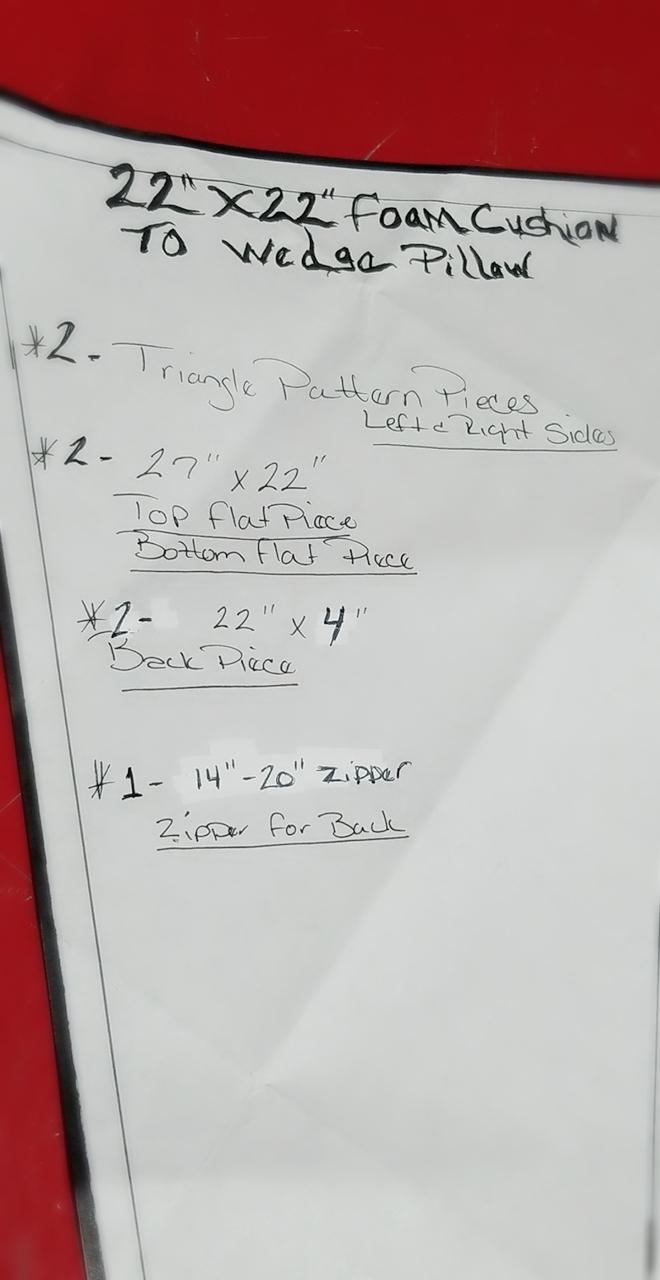 22" x 22" Foam Cushion
To Wedge Pillow
*2- Triangle Pattern Pieces
Left & Right Sides
*2- 27" x 22"
Top Flat Piece
Bottom Flat Piece
*2- 22" x 4"
Back Piece
#1- 14"-20" Zipper
Zipper for Back